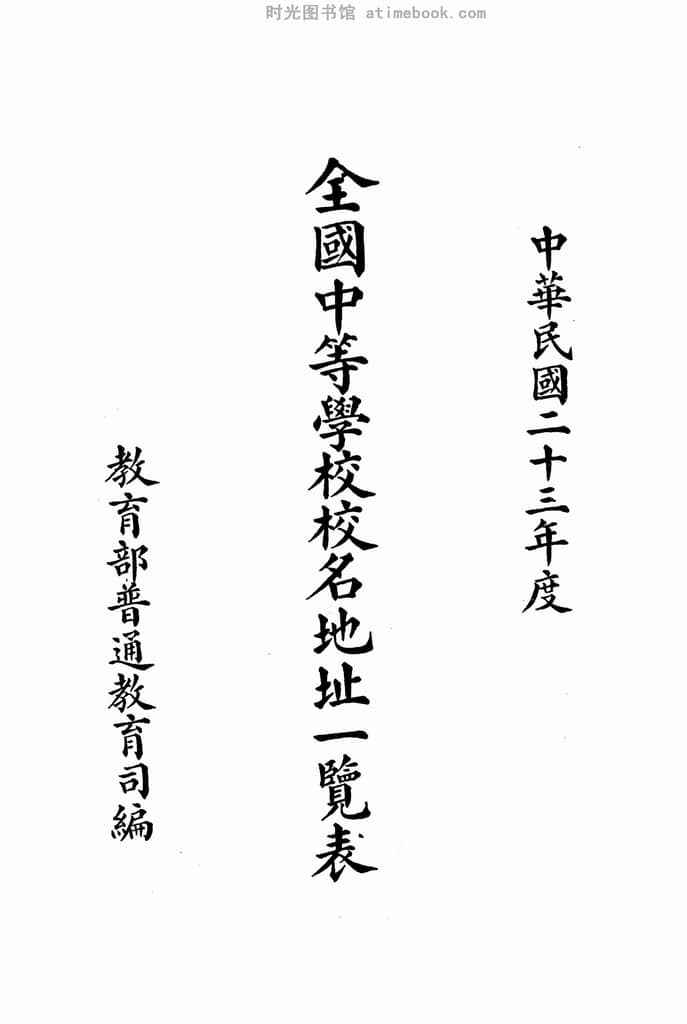 时光图书馆 atimebook.com
中華民國二十三年度
全國中等學校校名地址一覽表
教育部普通教育司編